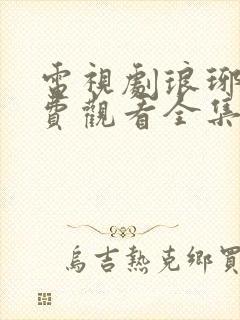 電視劇琅琊
費觀看全集
烏吉熱克鄉買